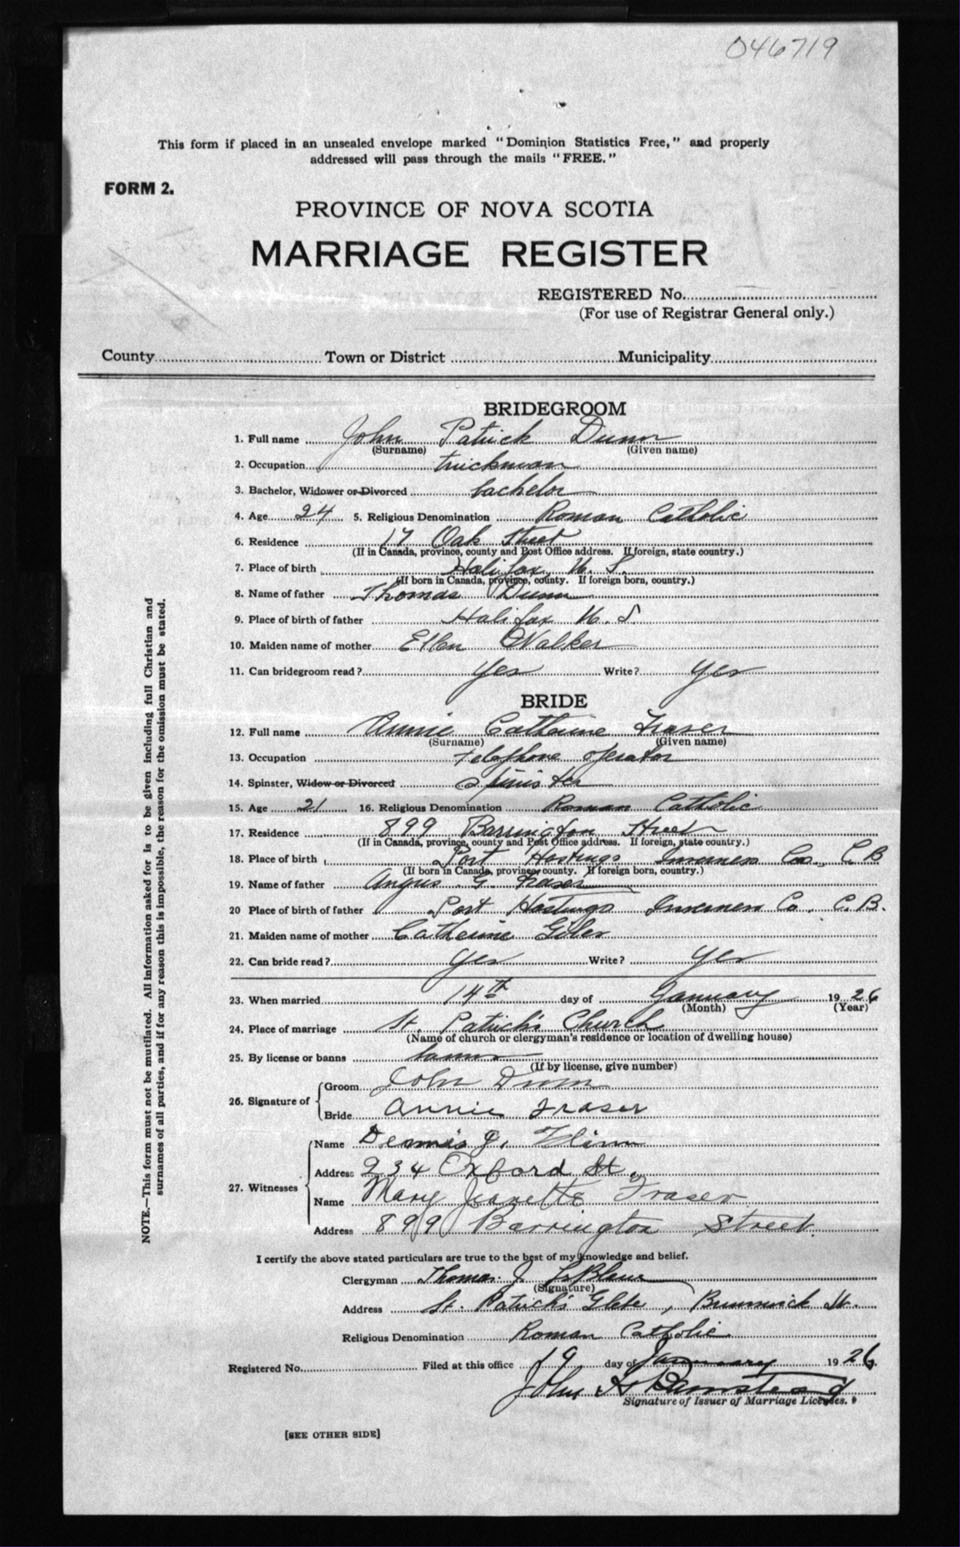 046719
This form if placed in an unsealed envelope marked "Dominion Statistics Free," and properly
addressed will pass through the mails "FREE."
FORM 2.
PROVINCE OF NOVA SCOTIA
MARRIAGE REGISTER
REGISTERED No.
(For use of Registrar General only.)
County Town or District Municipality
BRIDEGROOM
1. Full name John Patrick Dunn
(Surname) (Given name)
2. Occupation truckman
3. Bachelor, Widower or Divorced bachelor
4. Age 24 5. Religious Denomination Roman Catholic
6. Residence 17 Oak Street
(If in Canada, province, county and Post Office address. If foreign, state country.)
7. Place of birth Halifax N. S.
(If born in Canada, province, county. If foreign born, country.)
8. Name of father Thomas Dunn
9. Place of birth of father Halifax N. S.
10. Maiden name of mother Ellen Walker
11. Can bridegroom read? Yes Write? Yes
BRIDE
12. Full name Annie Catherine Fraser
(Surname) (Given name)
13. Occupation telephone operator
14. Spinster, Widow or Divorced spinster
15. Age 21 16. Religious Denomination Roman Catholic
17. Residence 899 Barrington Street
(If in Canada, province, county and Post Office address. If foreign, state country.)
18. Place of birth Port Hastings Inverness Co., C.B
(If born in Canada, province county. If foreign born, country.)
19. Name of father Angus G. Fraser
20 Place of birth of father Port Hastings Inverness Co. C.B.
21. Maiden name of mother Catherine Giles
22. Can bride read? Yes Write? Yes
23. When married 14th day of January 1926
(Month) (Year)
24. Place of marriage St. Patrick's Church
(Name of church or clergyman's residence or location of dwelling house)
25. By license or banns banns
(If by license, give number)
26. Signature of Groom John Dunn
Bride Annie Fraser
27. Witnesses Name Dennis J. Flinn
Address 234 Oxford St.
Name Mary Jeanette Fraser
Address 899 Barrington Street
I certify the above stated particulars are true to the best of my knowledge and belief.
Clergyman Thomas J. LeBlanc
(Signature)
Address St. Patrick's Glebe, Brunswick St.
Religious Denomination Roman Catholic
Registered No. Filed at this office 19 day of January 1926.
John H Barnstead
Signature of Issuer of Marriage Licenses.
[SEE OTHER SIDE]
NOTE.—This form must not be mutilated. All information asked for is to be given including full Christian and
surnames of all parties, and if for any reason this is impossible, the reason for the omission must be stated.